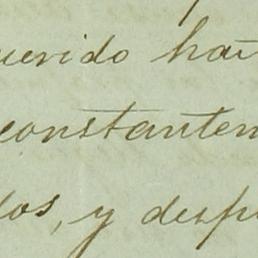 querido ha
constantem
dos, y desp